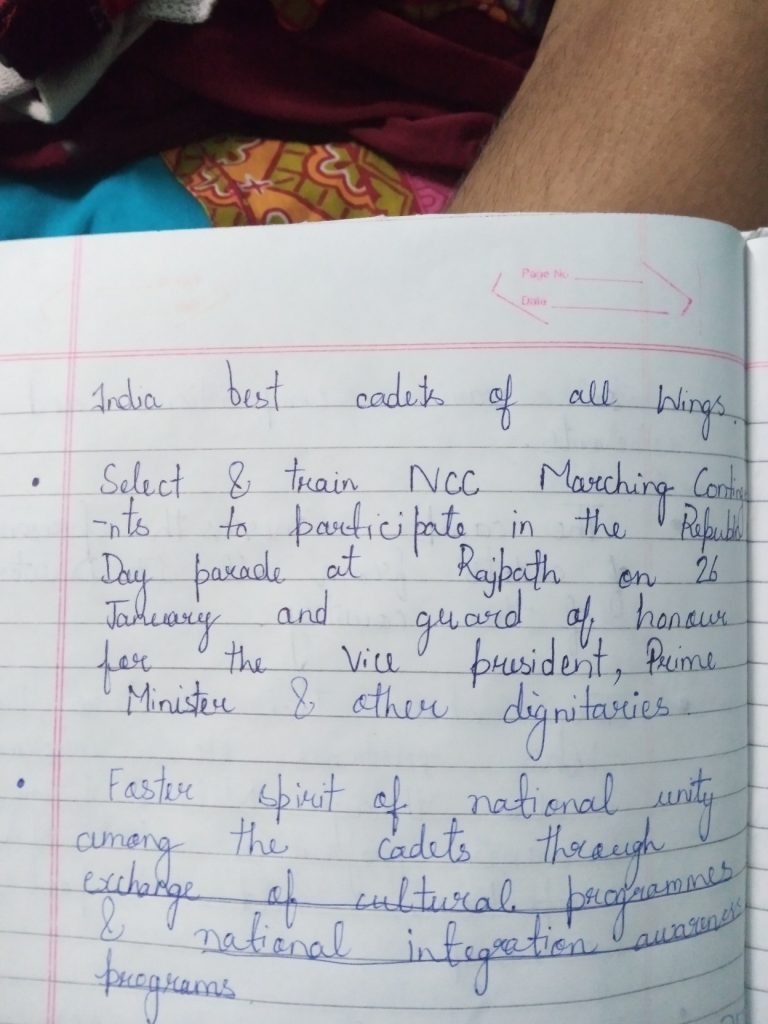 Page No.
Date
India best cadets of all Wings.
• Select & train NCC Marching Contin
-nts to participate in the Republi
Day parade at Rajpath on 26
January and guard of honour
for the Vice president, Prime
Minister & other dignitaries
• Foster spirit of national unity
among the cadets through
exchange of cultural programmes
& national integration awareness
programs